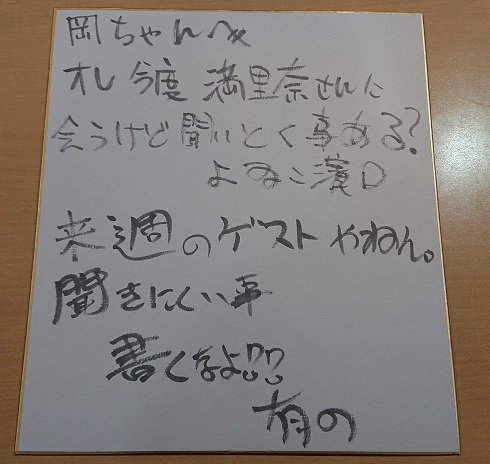 岡ちゃんへ
オレ今度 満里奈さんに
会うけど聞いとく事ある?
よゐこ濱口
来週のゲストやねん。
聞きにくい事
書くなよ!?!?
有の